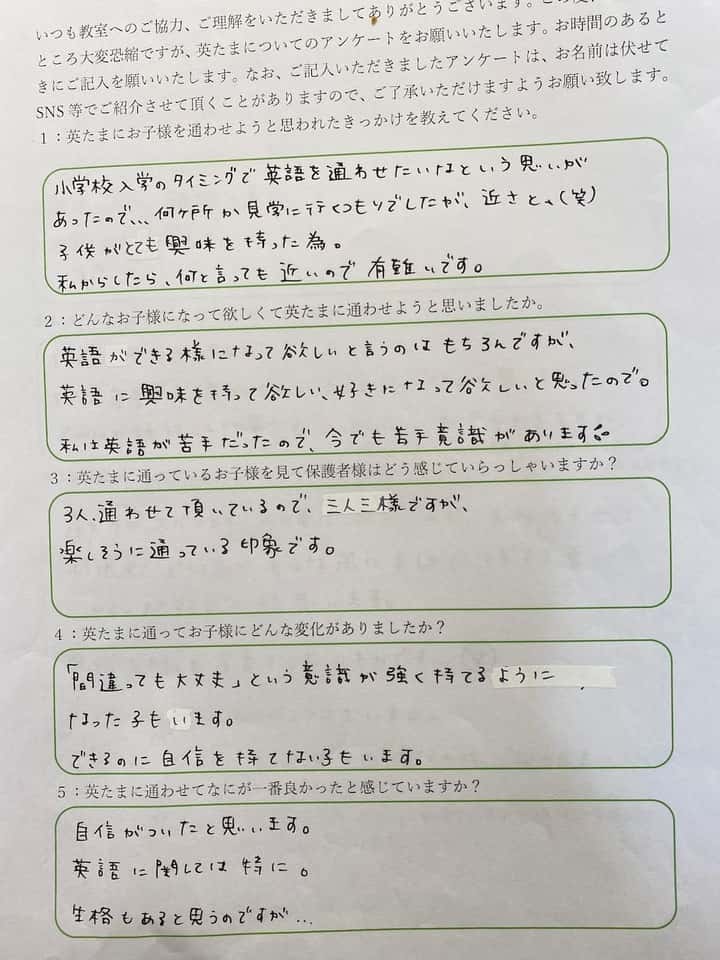 いつも教室へのご協力、ご理解をいただきましてありがとうございます。
ところ大変恐縮ですが、英たまについてのアンケートをお願いいたします。お時間のあると
きにご記入を願いいたします。なお、ご記入いただきましたアンケートは、お名前は伏せて
SNS 等でご紹介させて頂くことがありますので、ご了承いただけますようお願い致します。
1：英たまにお子様を通わせようと思われたきっかけを教えてください。
小学校入学のタイミングで英語を通わせたいなという思いが
あったので、、、何ヶ所か見学に行くつもりでしたが、近さと、(笑)
子供がとても興味を持った為。
私からしたら、何と言っても近いので有難いです。
2：どんなお子様になって欲しくて英たまに通わせようと思いましたか。
英語ができる様になって欲しいと言うのはもちろんですが、
英語に興味を持って欲しい、好きになって欲しいと思ったので。
私は英語が苦手だったので、今でも苦手意識があります
3：英たまに通っているお子様を見て保護者様はどう感じていらっしゃいますか？
3人、通わせて頂いているので、三人三様ですが、
楽しそうに通っている印象です。
4：英たまに通ってお子様にどんな変化がありましたか？
「間違っても大丈夫」という意識が強く持てるように
なった子もいます。
できるのに自信を持てない子もいます。
5：英たまに通わせてなにが一番良かったと感じていますか？
自信がついたと思います。
英語に関しては特に。
性格もあると思うのですが...